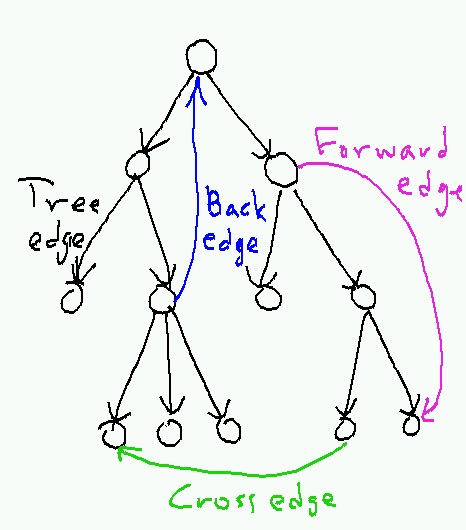 Forward
edge
Tree
edge
Back
edge
Cross edge